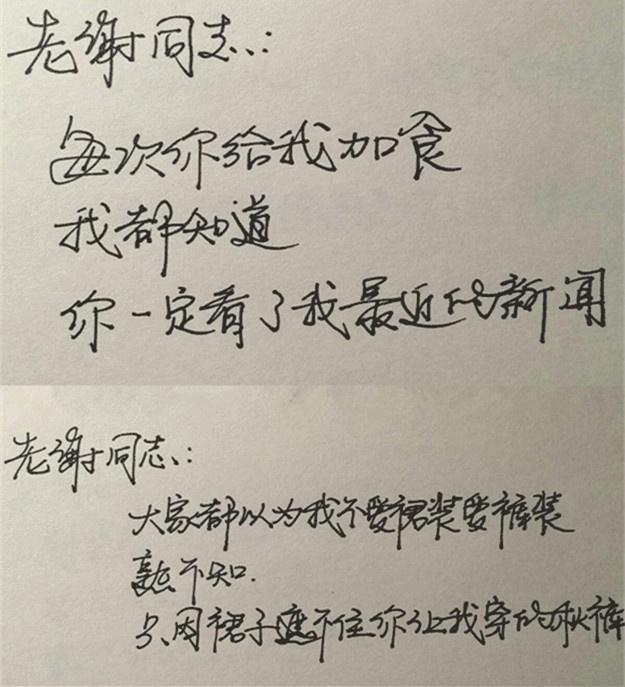 老谢同志：
每次你给我加食
我都知道
你一定看了我最近的新闻
老谢同志：
大家都以为我不爱裙装爱裤装
孰不知.
只因裙子遮不住你让我穿的秋裤